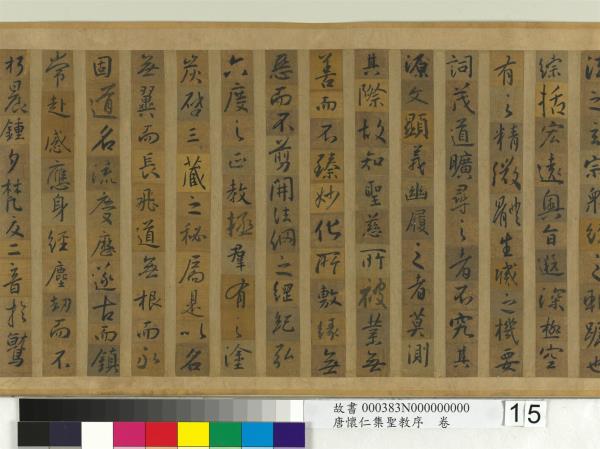 法之玄宗衆經之軌躅也
綜括宏遠奧旨遐深極空
有之精微體生滅之機要
詞茂道曠尋之者不究其
源文顯義幽履之者莫測
其際故知聖慈所被業無
善而不臻妙化所敷緣無
惡而不剪開法網之綱紀弘
六度之正教拯羣有之塗
炭啓三藏之秘扃是以名
無翼而長飛道無根而永
固道名流慶歷遂古而鎮
常赴感應身經塵劫而不
朽晨鍾夕梵交二音於鷲
故書 000383N000000000
唐懷仁集聖教序　卷
15